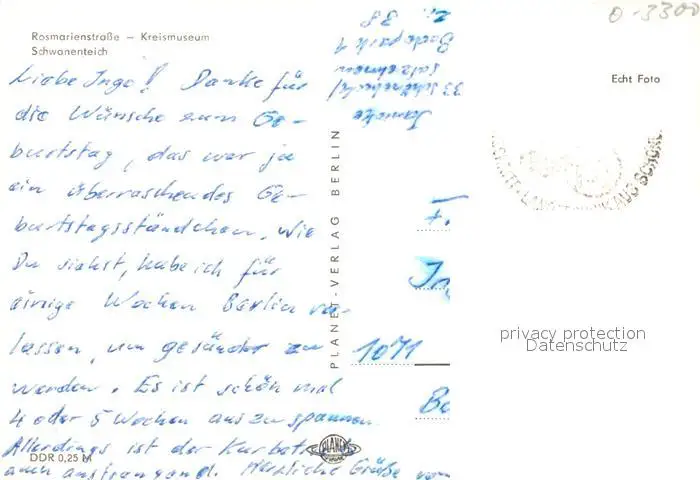 Rosmarienstraße – Kreismuseum
Schwanenteich
Echt Foto
0-3300
Liebe Inge! Danke für
die Wünsche zum Ge-
burtstag, das war ja
ein überraschendes Ge-
burtstagsständchen. Wie
Du siehst, habe ich für
einige Wochen Berlin ver-
lassen, um gesünder zu
werden. Es ist schön mal
4 oder 5 Wochen auszuspannen.
Allerdings ist der Kurbetr
auch anstrengend. Herzliche Grüße von
Badepark 1
PLANET-VERLAG BERLIN
F.
In
1071
Be
PLANET
DDR 0,25 M
privacy protection
Datenschutz